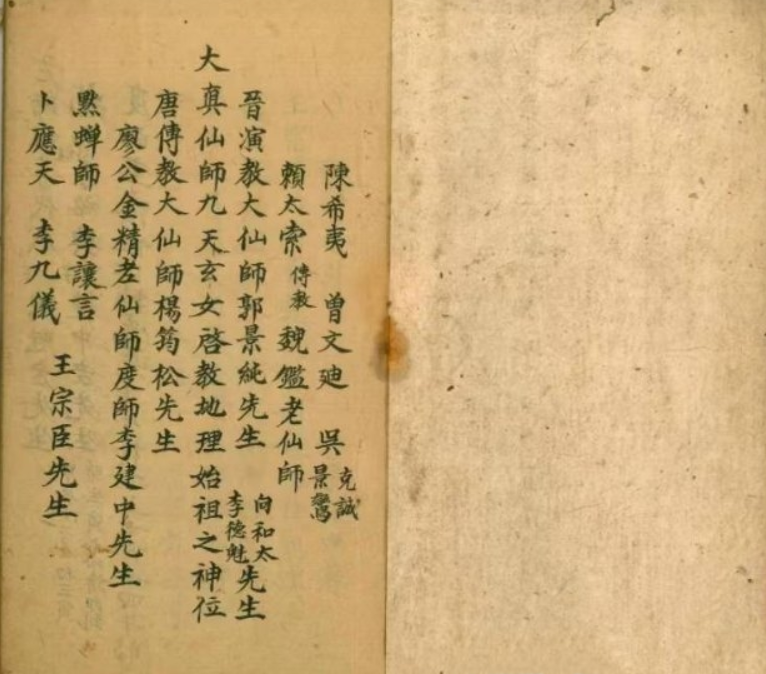 陳希夷 曾文廸 吳克誠景鸞
賴太索傳教 魏鑑老仙師
晉演教大仙師郭景純先生 向和太李德魁先生
大真仙師九天玄女啓教地理始祖之神位
唐傳教大仙師楊筠松先生
廖公金精老仙師度師李建中先生
黙蟬師 李讓言
卜應天 李九儀
王宗臣先生